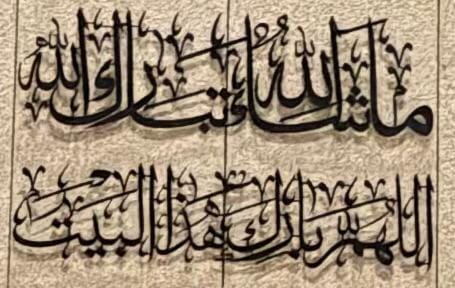 ما شاء الله تبارك الله
اللهم بارك هذا البيت